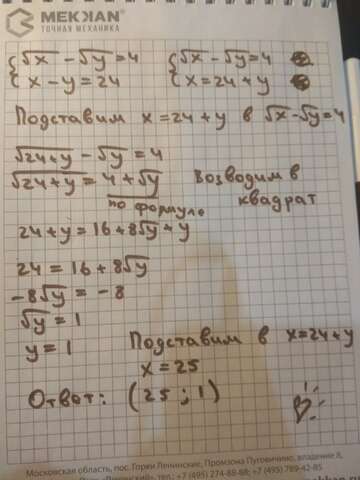 МЕККАН
ТОЧНАЯ МЕХАНИКА
{√x - √y = 4
{x - y = 24
{√x - √y = 4
{x = 24 + y
Подставим x = 24 + y в √x - √y = 4
√24+y - √y = 4
√24+y = 4 + √y
Возводим в
квадрат
по формуле
24 + y = 16 + 8√y + y
24 = 16 + 8√y
-8√y = -8
√y = 1
y = 1
Подставим в x = 24 + y
x = 25
Ответ: (25 ; 1)
Московская область, пос. Горки Ленинские, Промзона Пуговичино, владение 8,
тел.: +7 (495) 274-88-88; +7 (495) 789-42-85